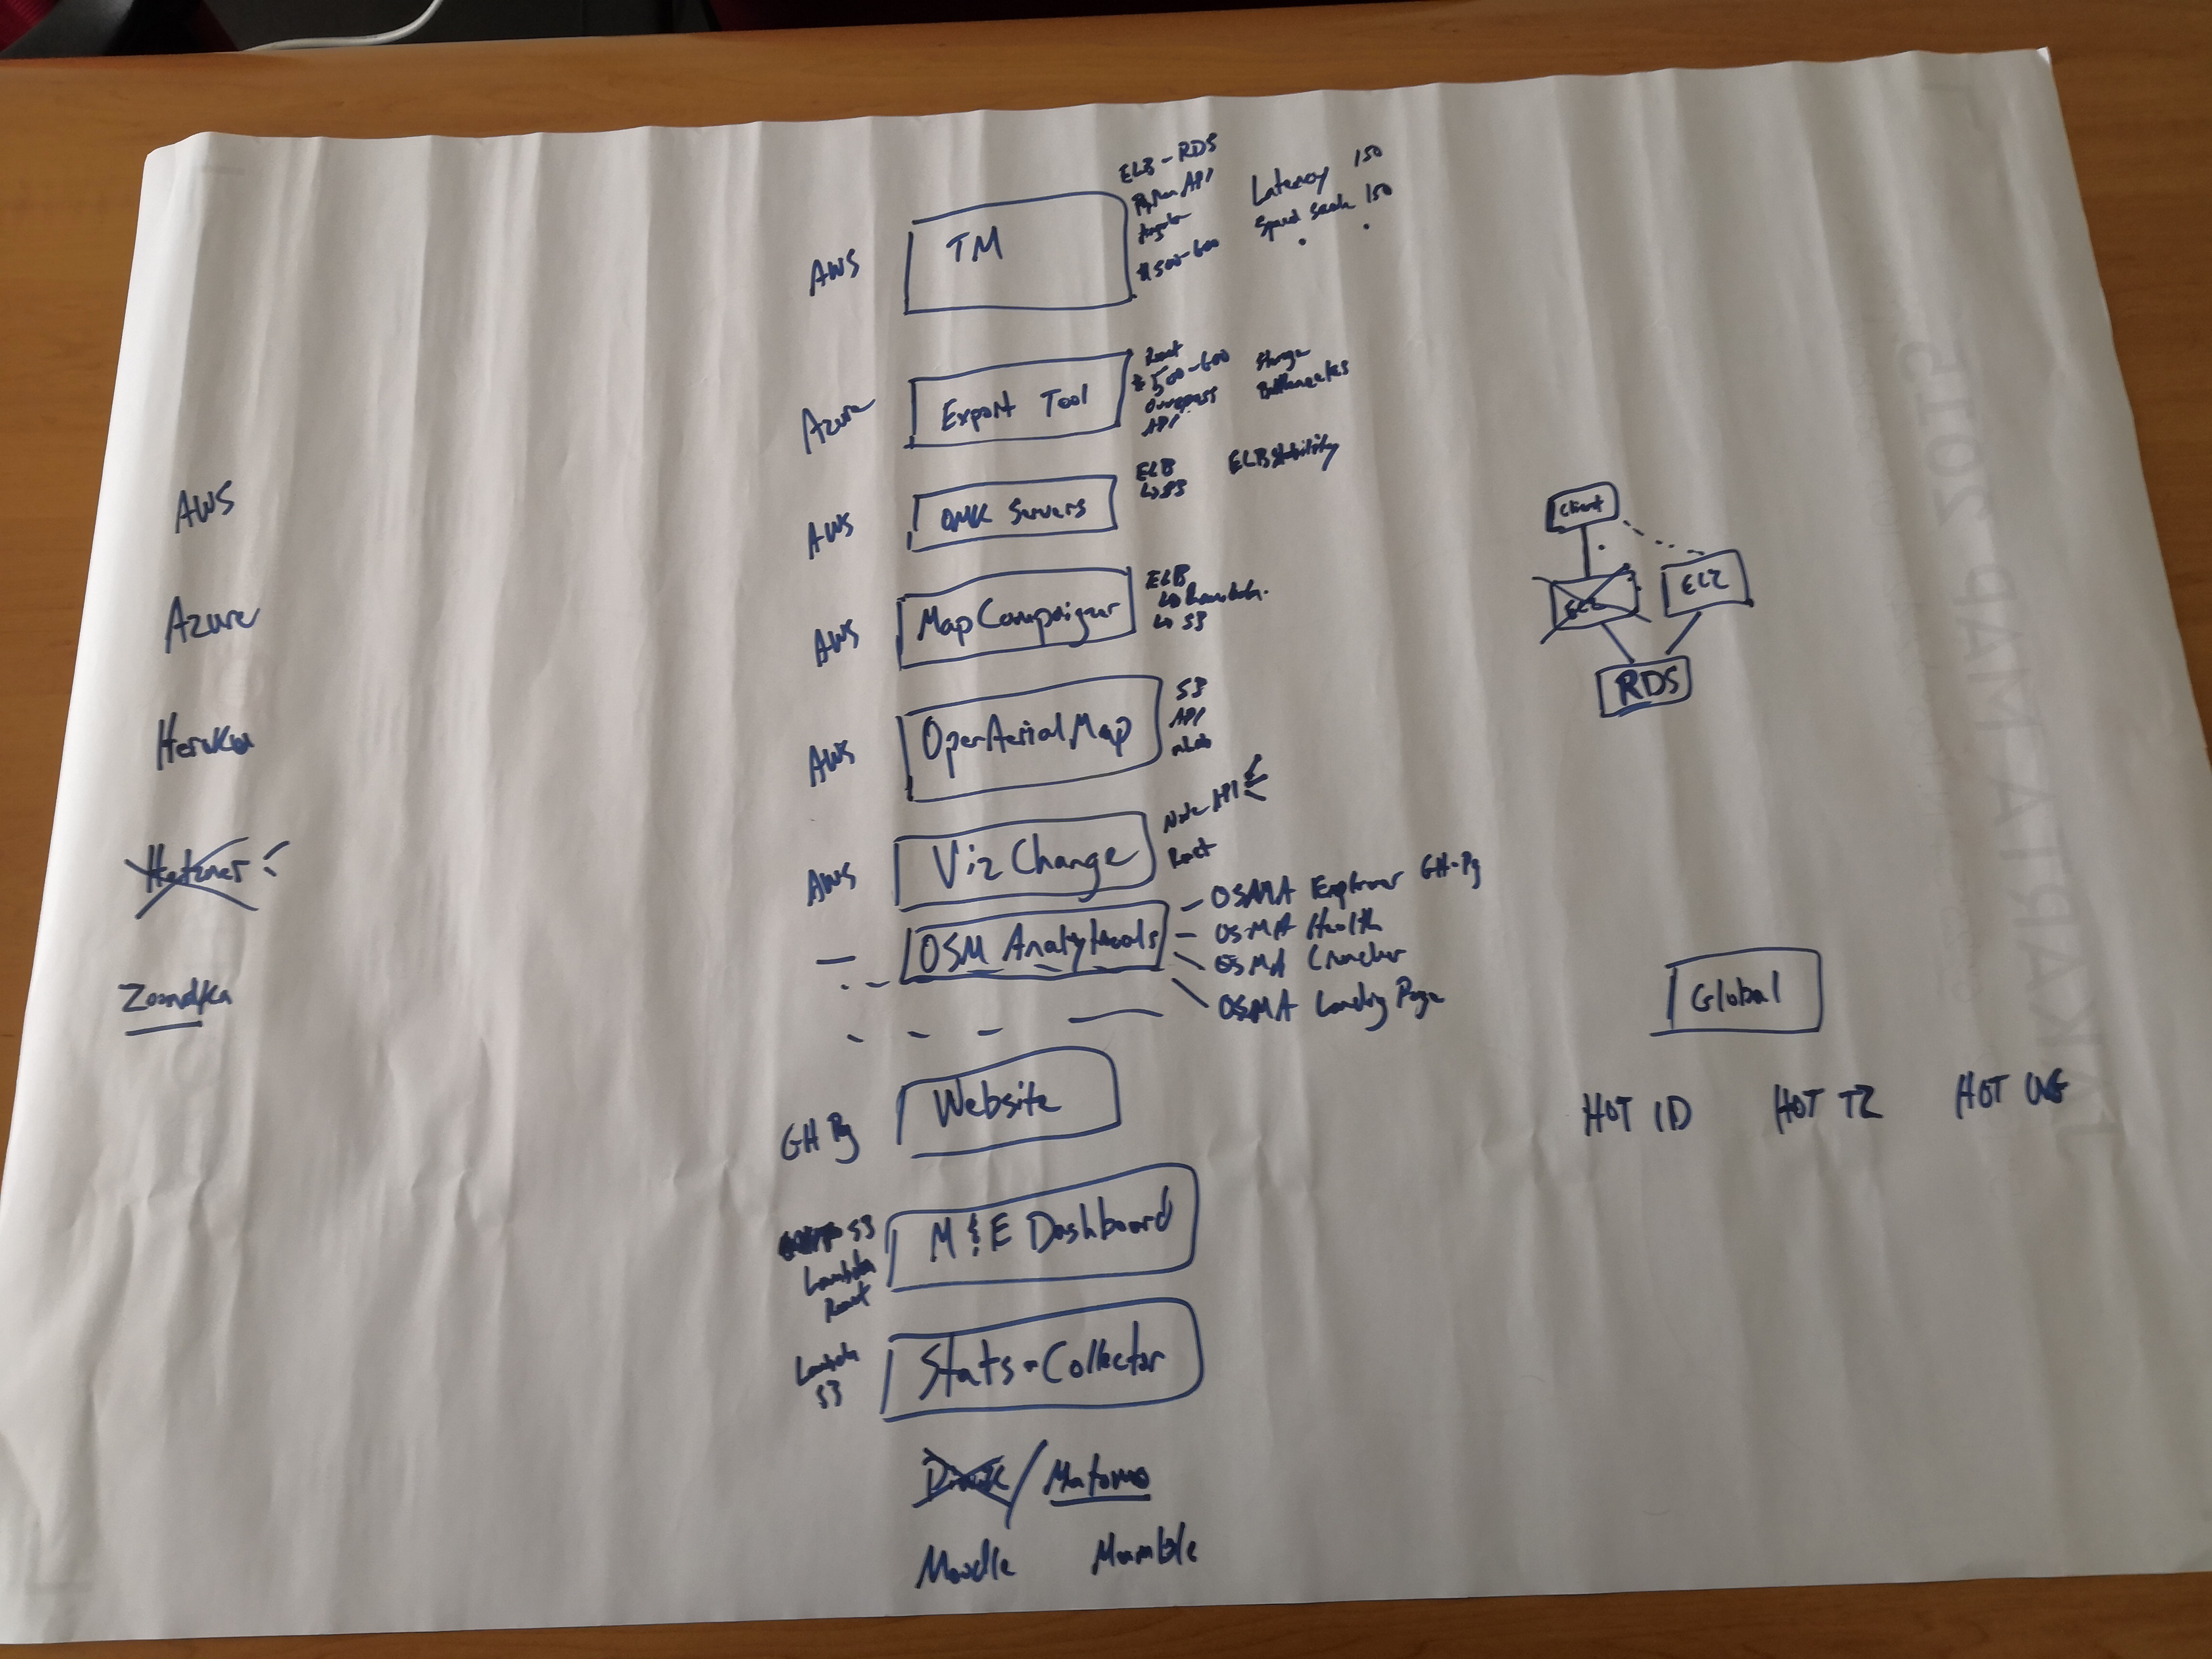 AWS
Azure
Heroku
Hetzner
AWS
TM
ELB - RDS
Python API
Angular
$500-600
Latency 150
Speed 150
Azure
Export Tool
React
$500-600
Overpass
API
Storage
Bottlenecks
AWS
OMK Servers
ELB
↳ S3
ELB Stability
AWS
MapCampaigner
ELB
↳ Lambda
↳ S3
AWS
OpenAerialMap
S3
API
mLab
AWS
Viz Change
Node API
React
OSM Analytics
OSMA Explorer GH-Pg
OSMA Health
OSMA Cruncher
OSMA Landing Page
GH Pg
Website
S3
Lambda
React
M & E Dashboard
Lambda
S3
Stats-Collector
/ Matomo
Moodle Mumble
Client
EC2
EC2
RDS
Global
HOT ID HOT TZ HOT UG
JAKARTA MAP 2015